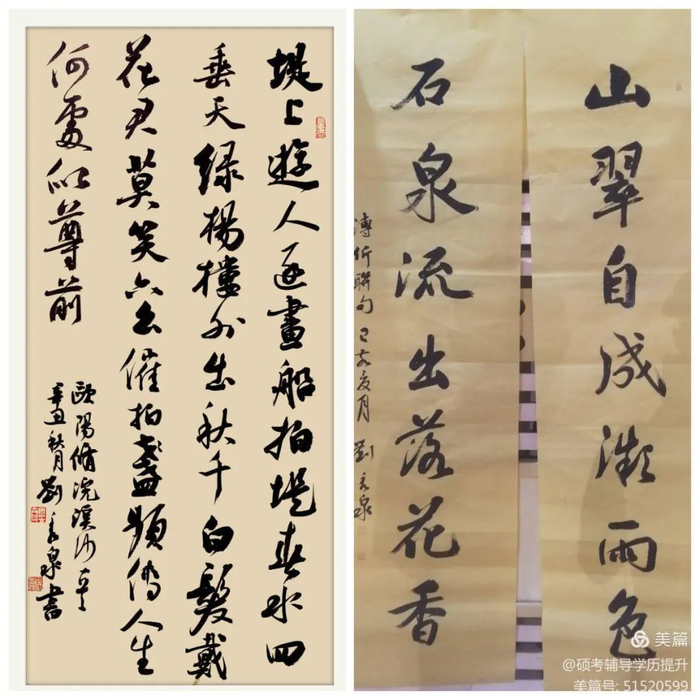 堤上遊人逐畫船拍堤春水四
垂天绿楊樓外出秋千白髮戴
花君莫笑六幺催拍盞頻傳人生
何處似尊前
歐陽脩浣溪沙一首
辛丑秋月劉泉書
山翠自成微雨色
石泉流出落花香
溥忻聯句己亥夏月劉泉
美篇
@硕考辅导学历提升
美篇号: 51520599